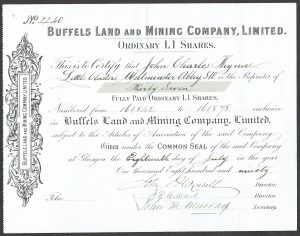 No 2240
BUFFELS LAND AND MINING COMPANY, LIMITED.
ORDINARY £1 SHARES.
This is to Certify that John Charles Thynne
Little Cloisters Westminster Abbey S.W. is the Proprietor of
Thirty Seven
FULLY PAID ORDINARY £1 SHARES.
Numbered from 161842 to 161878 inclusive
in Buffels Land and Mining Company, Limited,
subject to the Articles of Association of the said Company.
GIVEN under the COMMON SEAL of the said Company
at Glasgow the Eighteenth day of July in the year
One thousand Eight hundred and ninety
Director.
Director.
Folio
John M. Murray Secretary.
BUFFELS LAND AND MINING COMPANY, LIMITED.